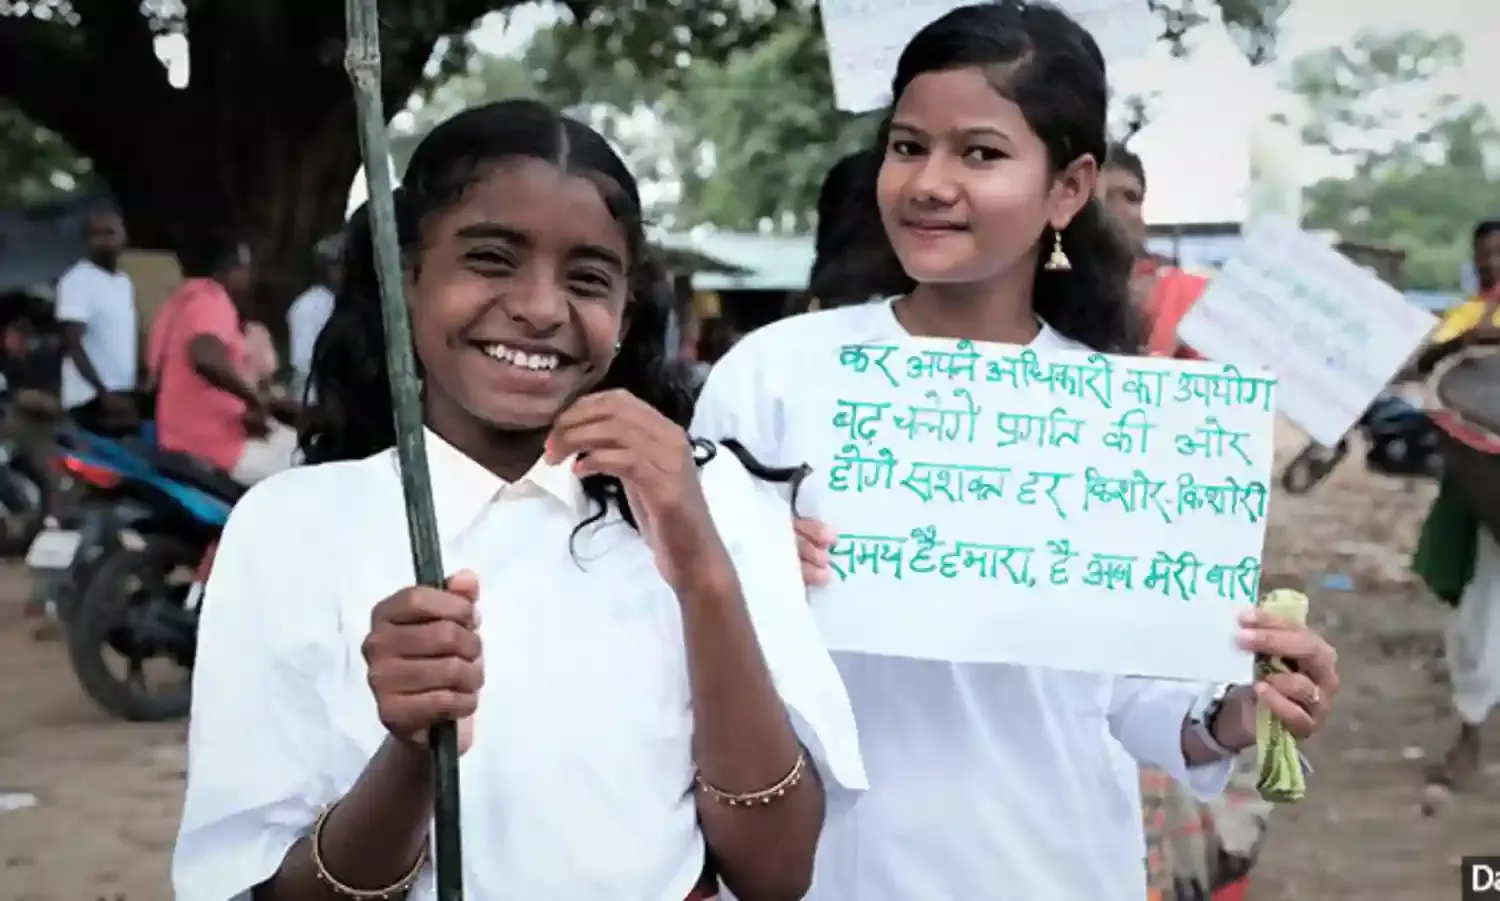 कर अपने अधिकारों का उपयोग
बढ़ चलेंगे प्रगति की ओर
होंगे सशक्त हर किशोर-किशोरी
समय है हमारा, है अब मेरी बारी
Da